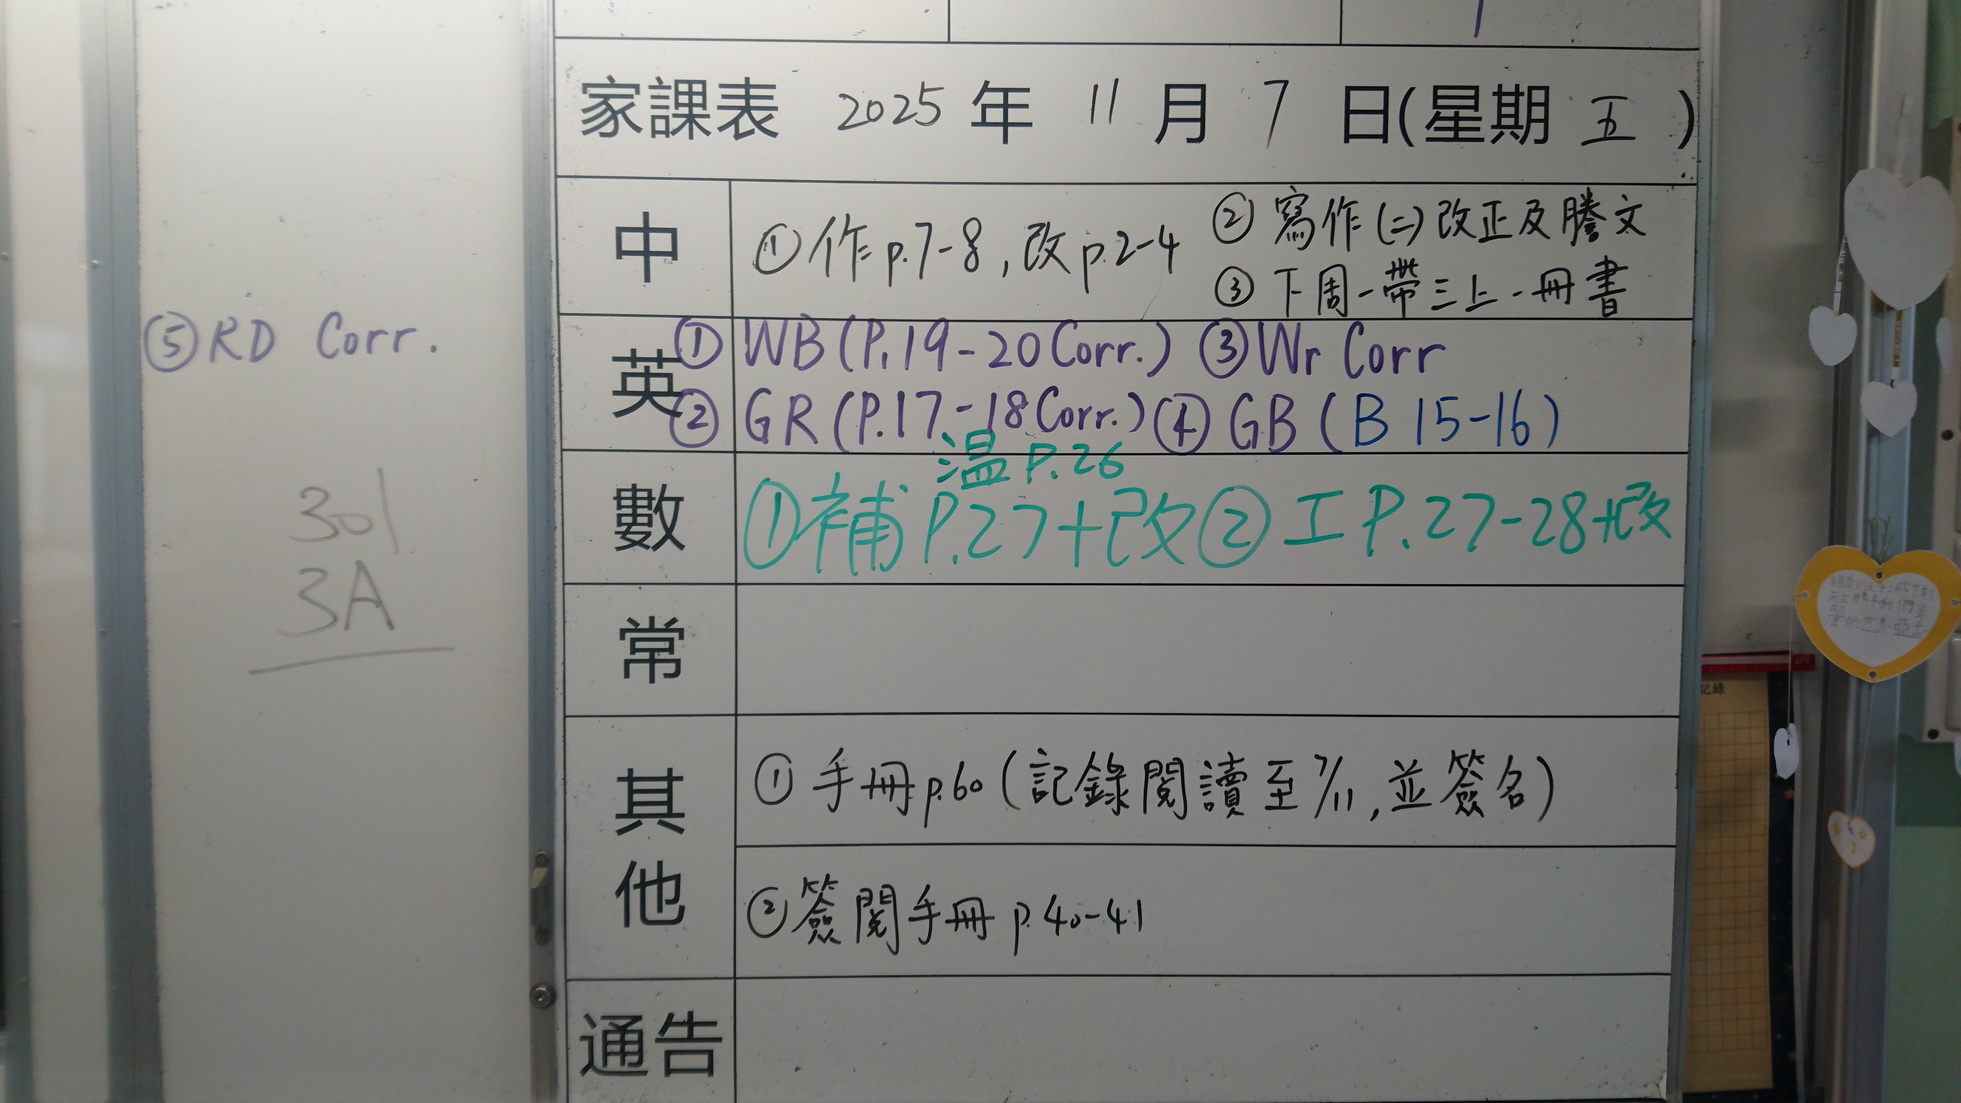 家課表 2025 年 11 月 7 日(星期 五 )
中
① 作 p.7-8, 改 p.2-4
② 寫作(二)改正及謄文
③ 下周一帶三上一冊書
英
① WB (P.19-20 Corr.) ③ Wr Corr
② GR (P.17-18 Corr.) ④ GB (B 15-16)
⑤ RD Corr.
301
3A
數
温 P.26
① 補 P.27+改 ② 工 P.27-28+改
常
其他
① 手冊 p.60 (記錄閱讀至 7/11, 並簽名)
② 簽閱手冊 p.40-41
通告
記錄